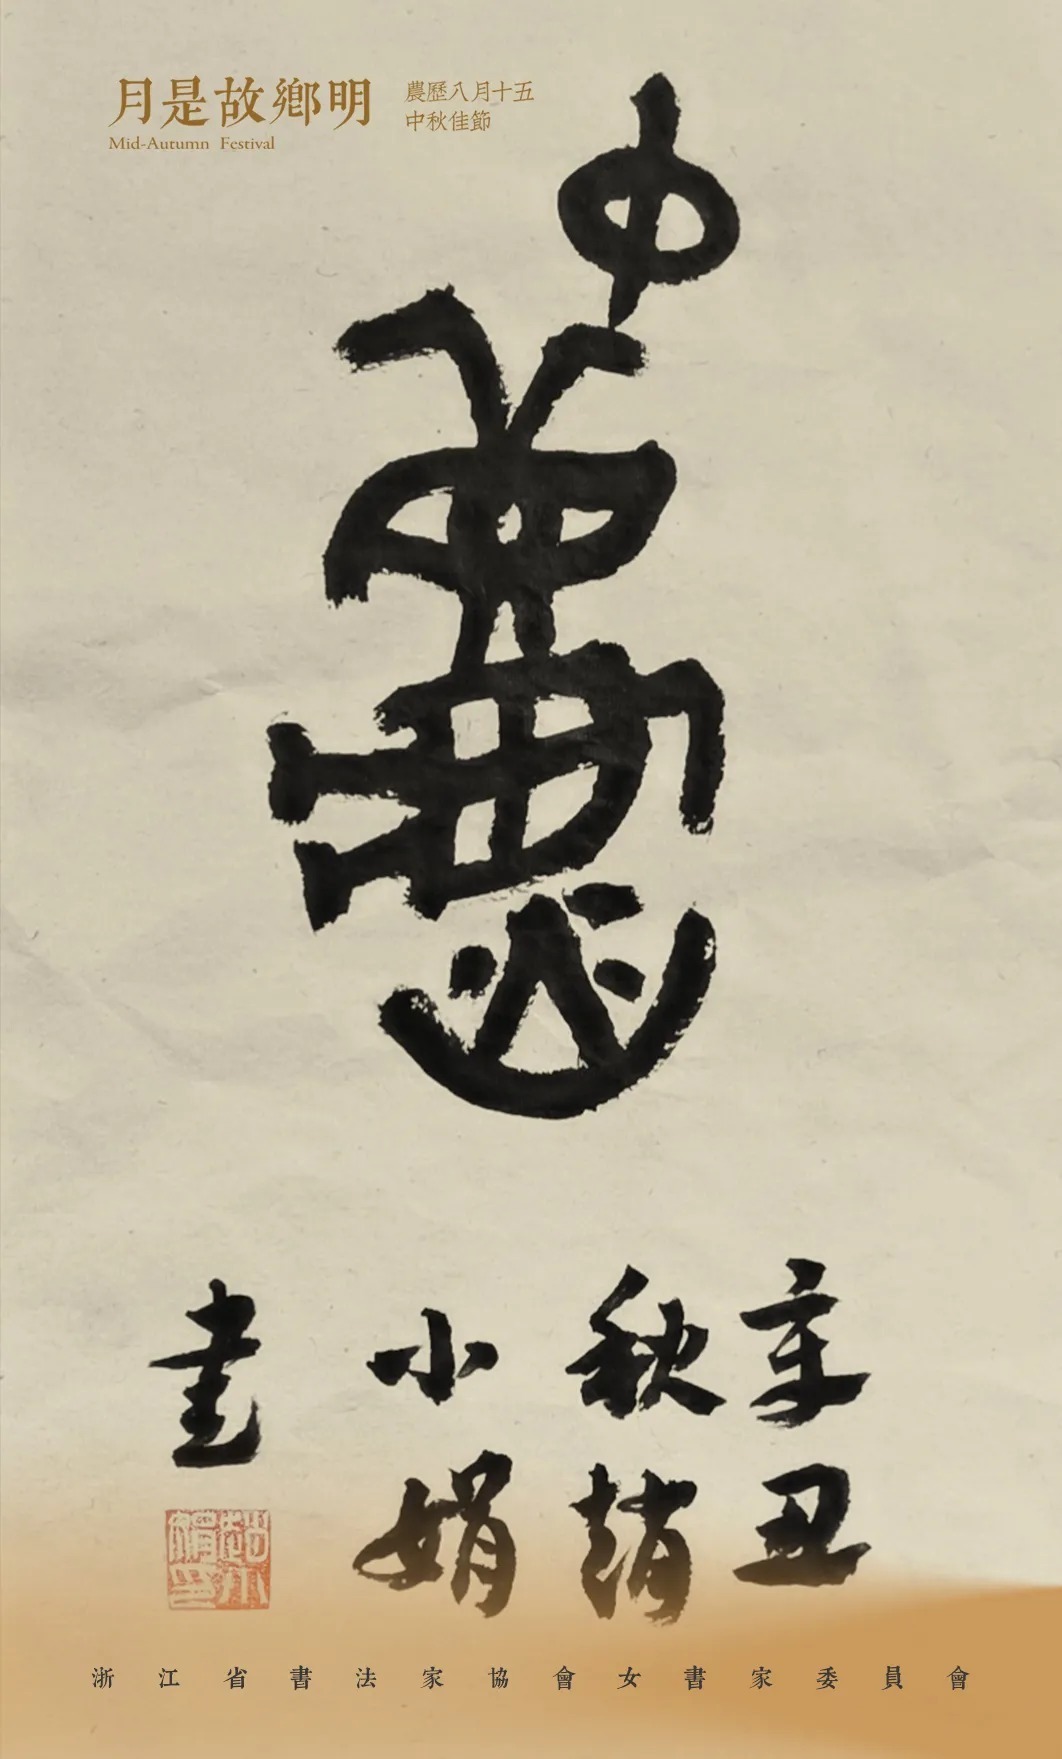 月是故鄉明
Mid-Autumn Festival
農歷八月十五
中秋佳節
中秋
辛丑
秋趙
小娟
書
趙小娟印
浙江省書法家協會女書家委員會